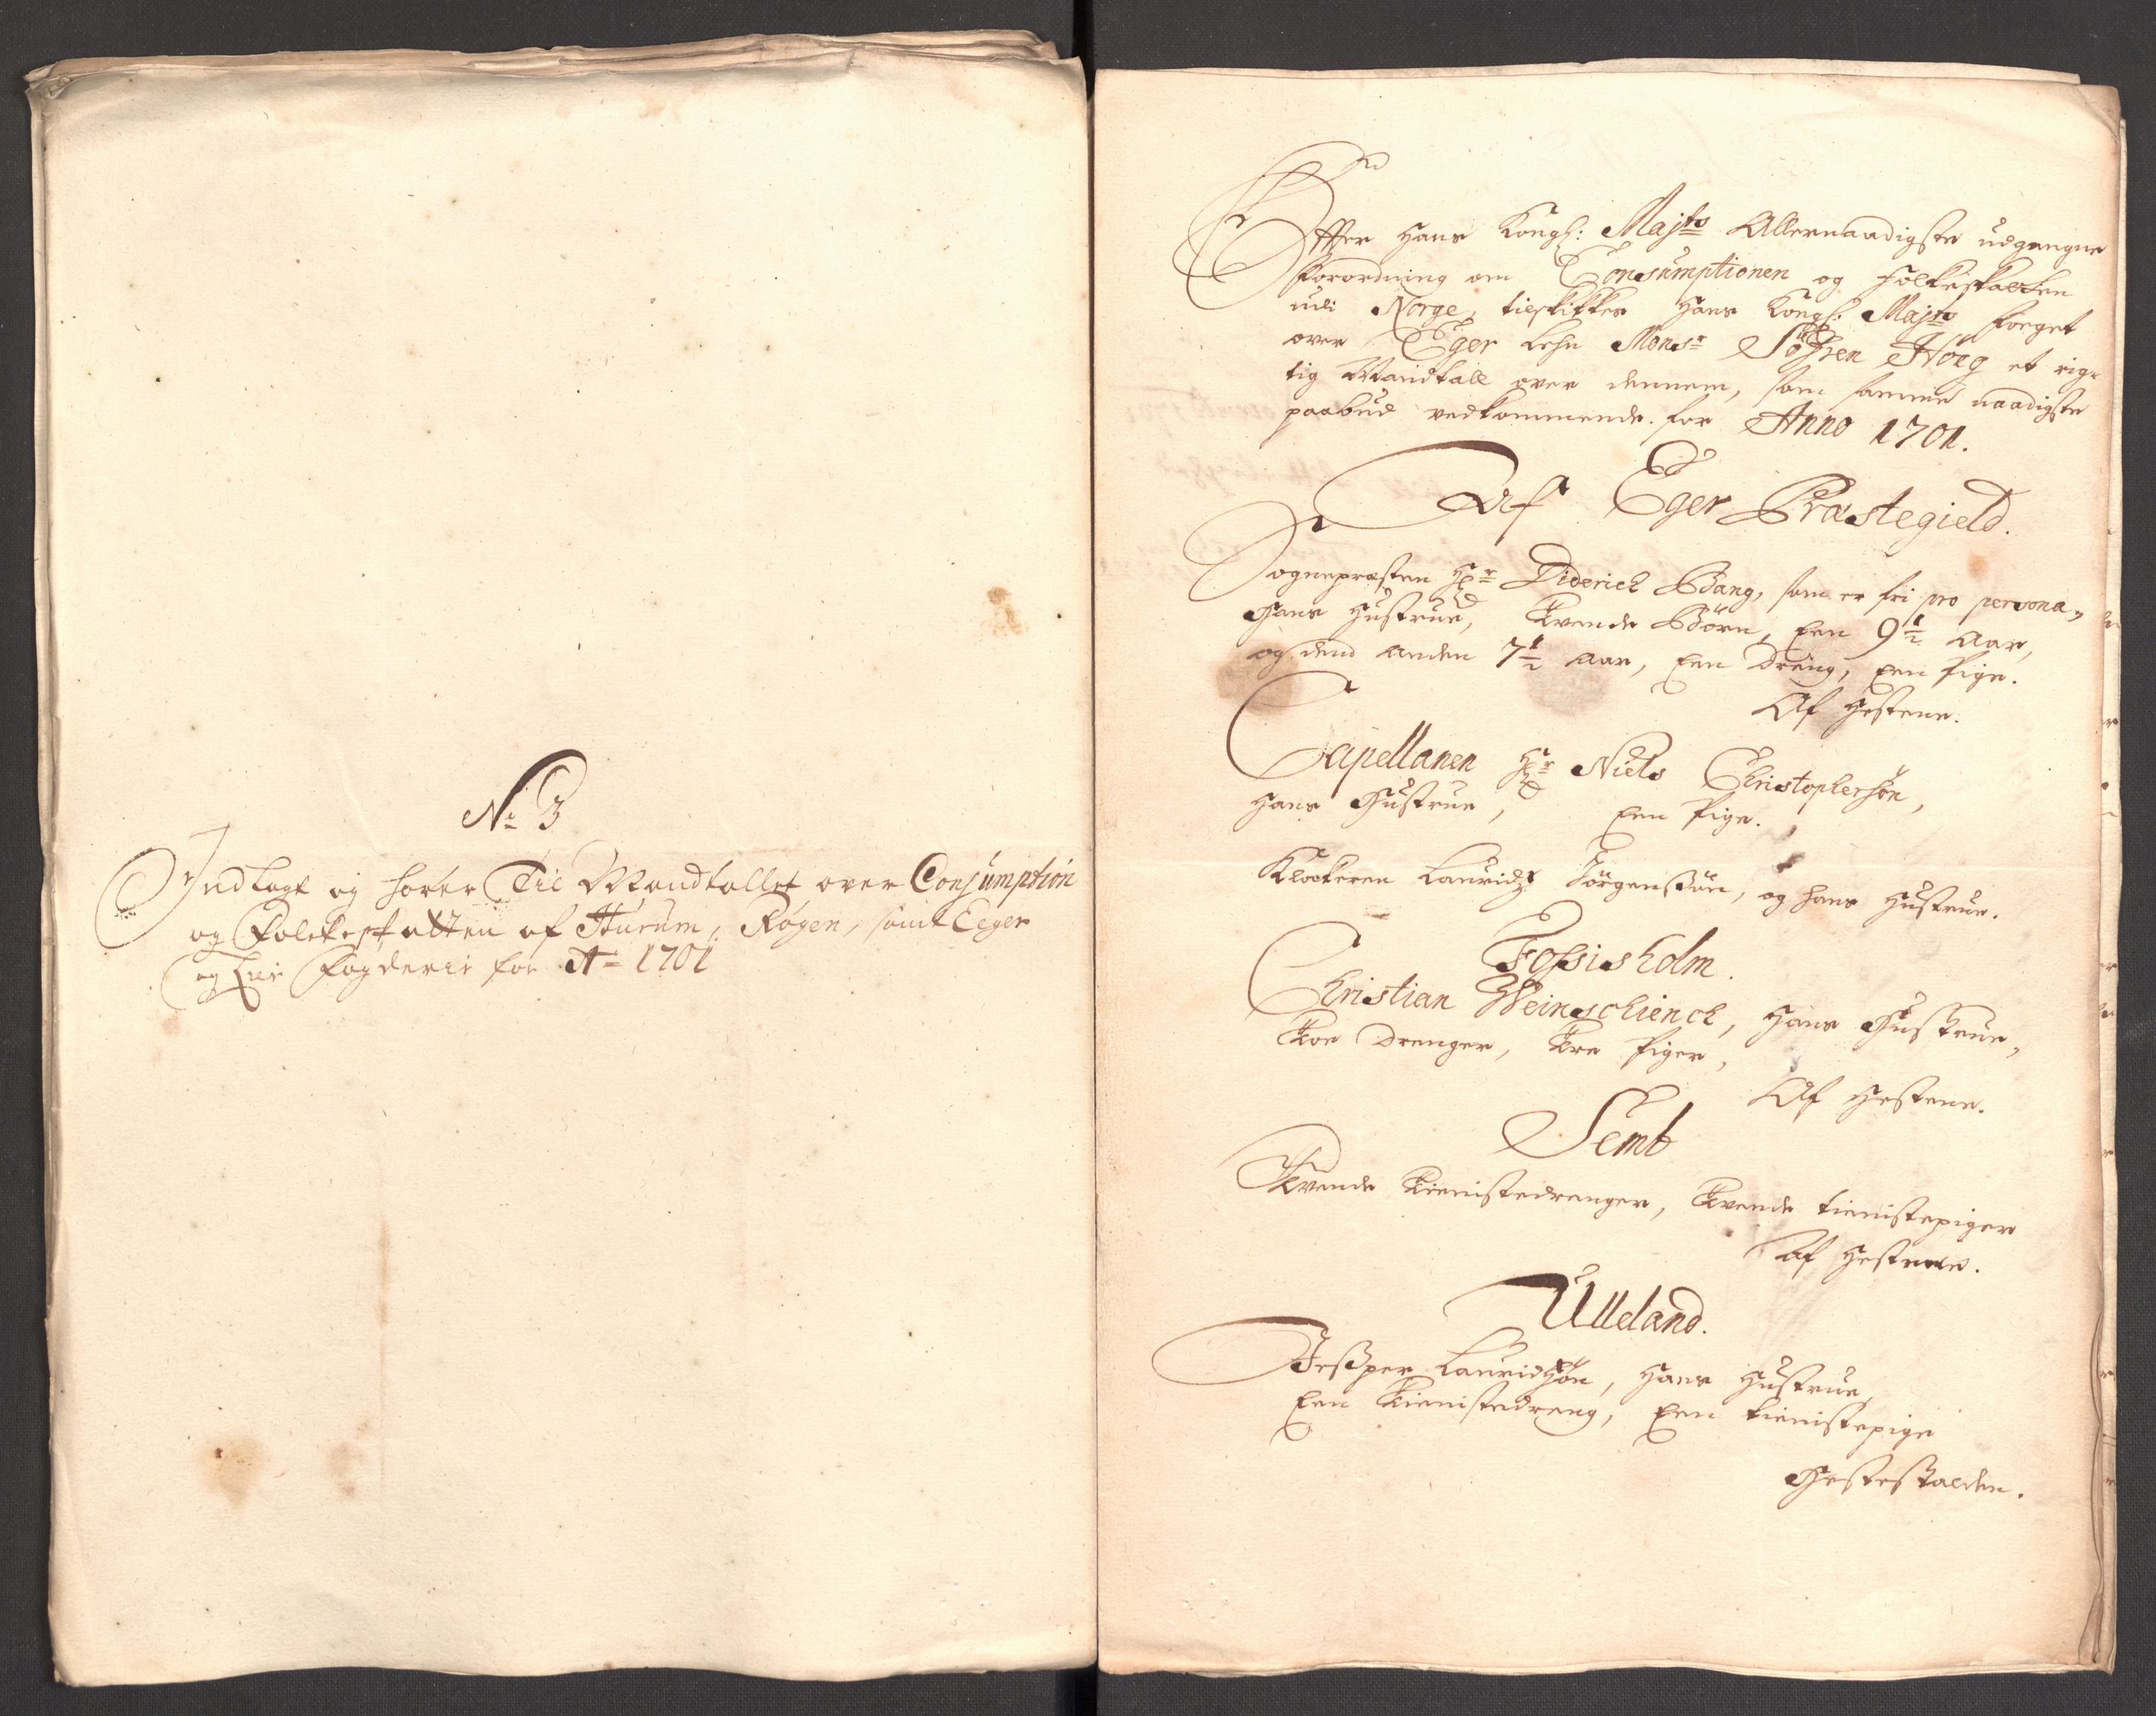 No 3
Indlagt og hører Til Mandtallet over Consumption
og Folkeskatten af Hurum, Røgen, samt Eeger
og Lier Fogderie for Ao 1701
Effter Hans Kongl: Majts Allernaadigste udgangne
Forordning om Consumptionen og Folkeskatten
udi Norge, tilskikkes Hans Kongl: Majts Foeget
over Eger Lehn Monsr Søfren Høeg et rig-
tig Mandtall over dennem, som samme naadigste
paabud vedkommende for Anno 1701.
Af Eger Præstegield.
Sognepræsten Hr Diderich Bang, som er fri pro persona,
Hans Hustrue, Tvende Børn, Een 9½ Aar,
og dend anden 7½ Aar, Een Dreng, Een Pige.
Af Hestene.
Capellanen Hr Niels Christophersøn,
Hans Hustrue, Een Pige.
Klokeren Lauridz Jörgensøn, og hans Hustrue.
Fossisholm.
Christian Weinschienck, Hans Hustrue,
Toe Drenger, Tre Piger,
Af Hestene.
Semb
Tvende Tienistedrenger, Tvende tienistepiger
Af Hestene.
Ulleland.
Jesper Lauridsøn, Hans Hustrue,
Een Tienistedreng, Een tienistepige
Hesteskatten.